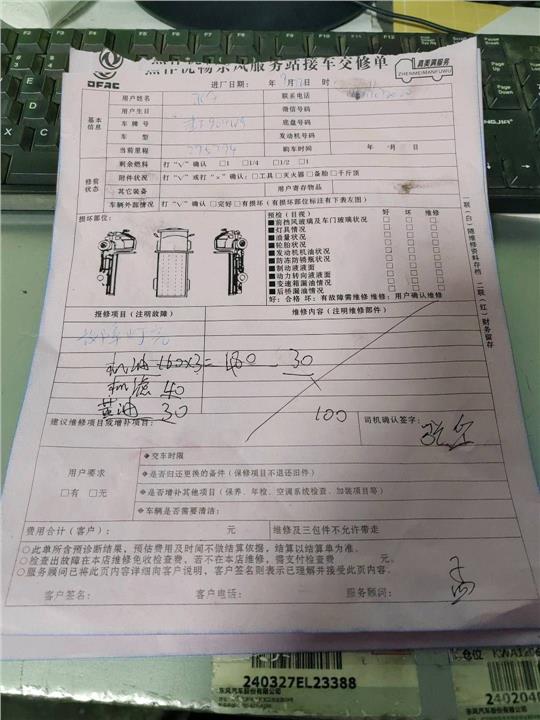 DFAC
服务站接车交修单
真美真服务
ZHENMEIZHENFUWU
进厂日期： 年 月 日 时
基本信息
用户姓名
联系电话
用户生日
微信号码
车牌号
底盘号码
车 型
发动机号码
当前里程
购车时间 年 月 日
修前状态
剩余燃料 打“√”确认 □1 □1/4 □1/2 □1
附件状况 打“√”或打“×”确认：□工具□灭火器□备胎□千斤顶
其它装备 用户寄存物品
车辆外观情况 打“√”确认 □完好 □有损坏（有损坏部位标注有下表左图）
损坏部位：
预检（目视） 好 坏 维修
■前挡风玻璃及车门玻璃状况
■灯具情况
■油量状况
■轮胎状况
■发动机机油状况
■防冻防锈瓶状况
■制动液液面
■动力转向液液面
■变速箱漏油情况
■后桥漏油情况
好：合格 坏：有故障需维修 维修：用户确认维修
一联（白）随维修资料存档 二联（红）财务留存
报修项目（注明故障）
维修内容（注明维修部件）
故障灯亮
机油 160×3=480 30
机滤 40
黄油 30
100
建议维修项目或增补项目：
司机确认签字：
用户要求
□有 □无
◆交车时限
◆是否归还更换的备件（保修项目不退还旧件）
◆是否增补其他项目（保养、年检、空调系统检查、加装项目等）
◆车辆是否需要清洁：
费用合计（客户）： 元
维修及三包件不允许带走
○此单所含预诊断结果，预估费用及时间不做结算依据，结算以结算单为准。
○检查出故障在本店维修免收检查费，若不在本店维修，需支付检查费 元。
○服务顾问已将此页内容详细向客户说明，客户签名则表示已理解并接受此页内容。
客户签名： 客户电话： 服务顾问：
240327EL23388
东风汽车股份有限公司
仓位
东风汽车股份有限公司